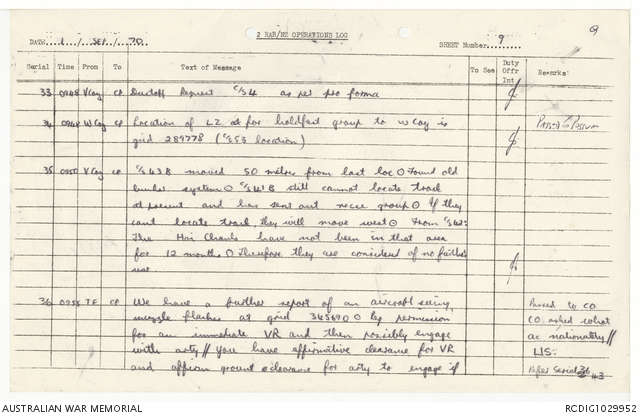 9
2 RAR/NZ OPERATIONS LOG
DATE 1 / SEP / 70 SHEET Number 9
Serial Time From To Text of Message To See Duty Offr Int Remarks
33 0948 V Coy CP Dustoff Request C/S4 as per pro forma
34 0948 W Coy CP Location of LZ at for holdfast group to W Coy is Passed to Possum
grid 289778 (C/S53 location)
35 0950 V Coy CP C/S43B moved 50 metres from last loc O Found old
bunker system O C/S41B still cannot locate track
at present and has sent out recce group O If they
cant locate track they will move west O From C/S42:
The Hoi Chanhs have not been in that area
for 12 months O Therefore they are considered of no further
use
36 0955 TF CP We have a further report of an aircraft seeing Passed to CO
muzzle flashes at grid 345690 O Req permission CO asked what
for an immediate VR and then possibly engage ac nationality //
with arty // You have affirmative clearance for VR US.
and affirm ground clearance for arty to engage if Refer Serial 43
AUSTRALIAN WAR MEMORIAL RCDIG1029952